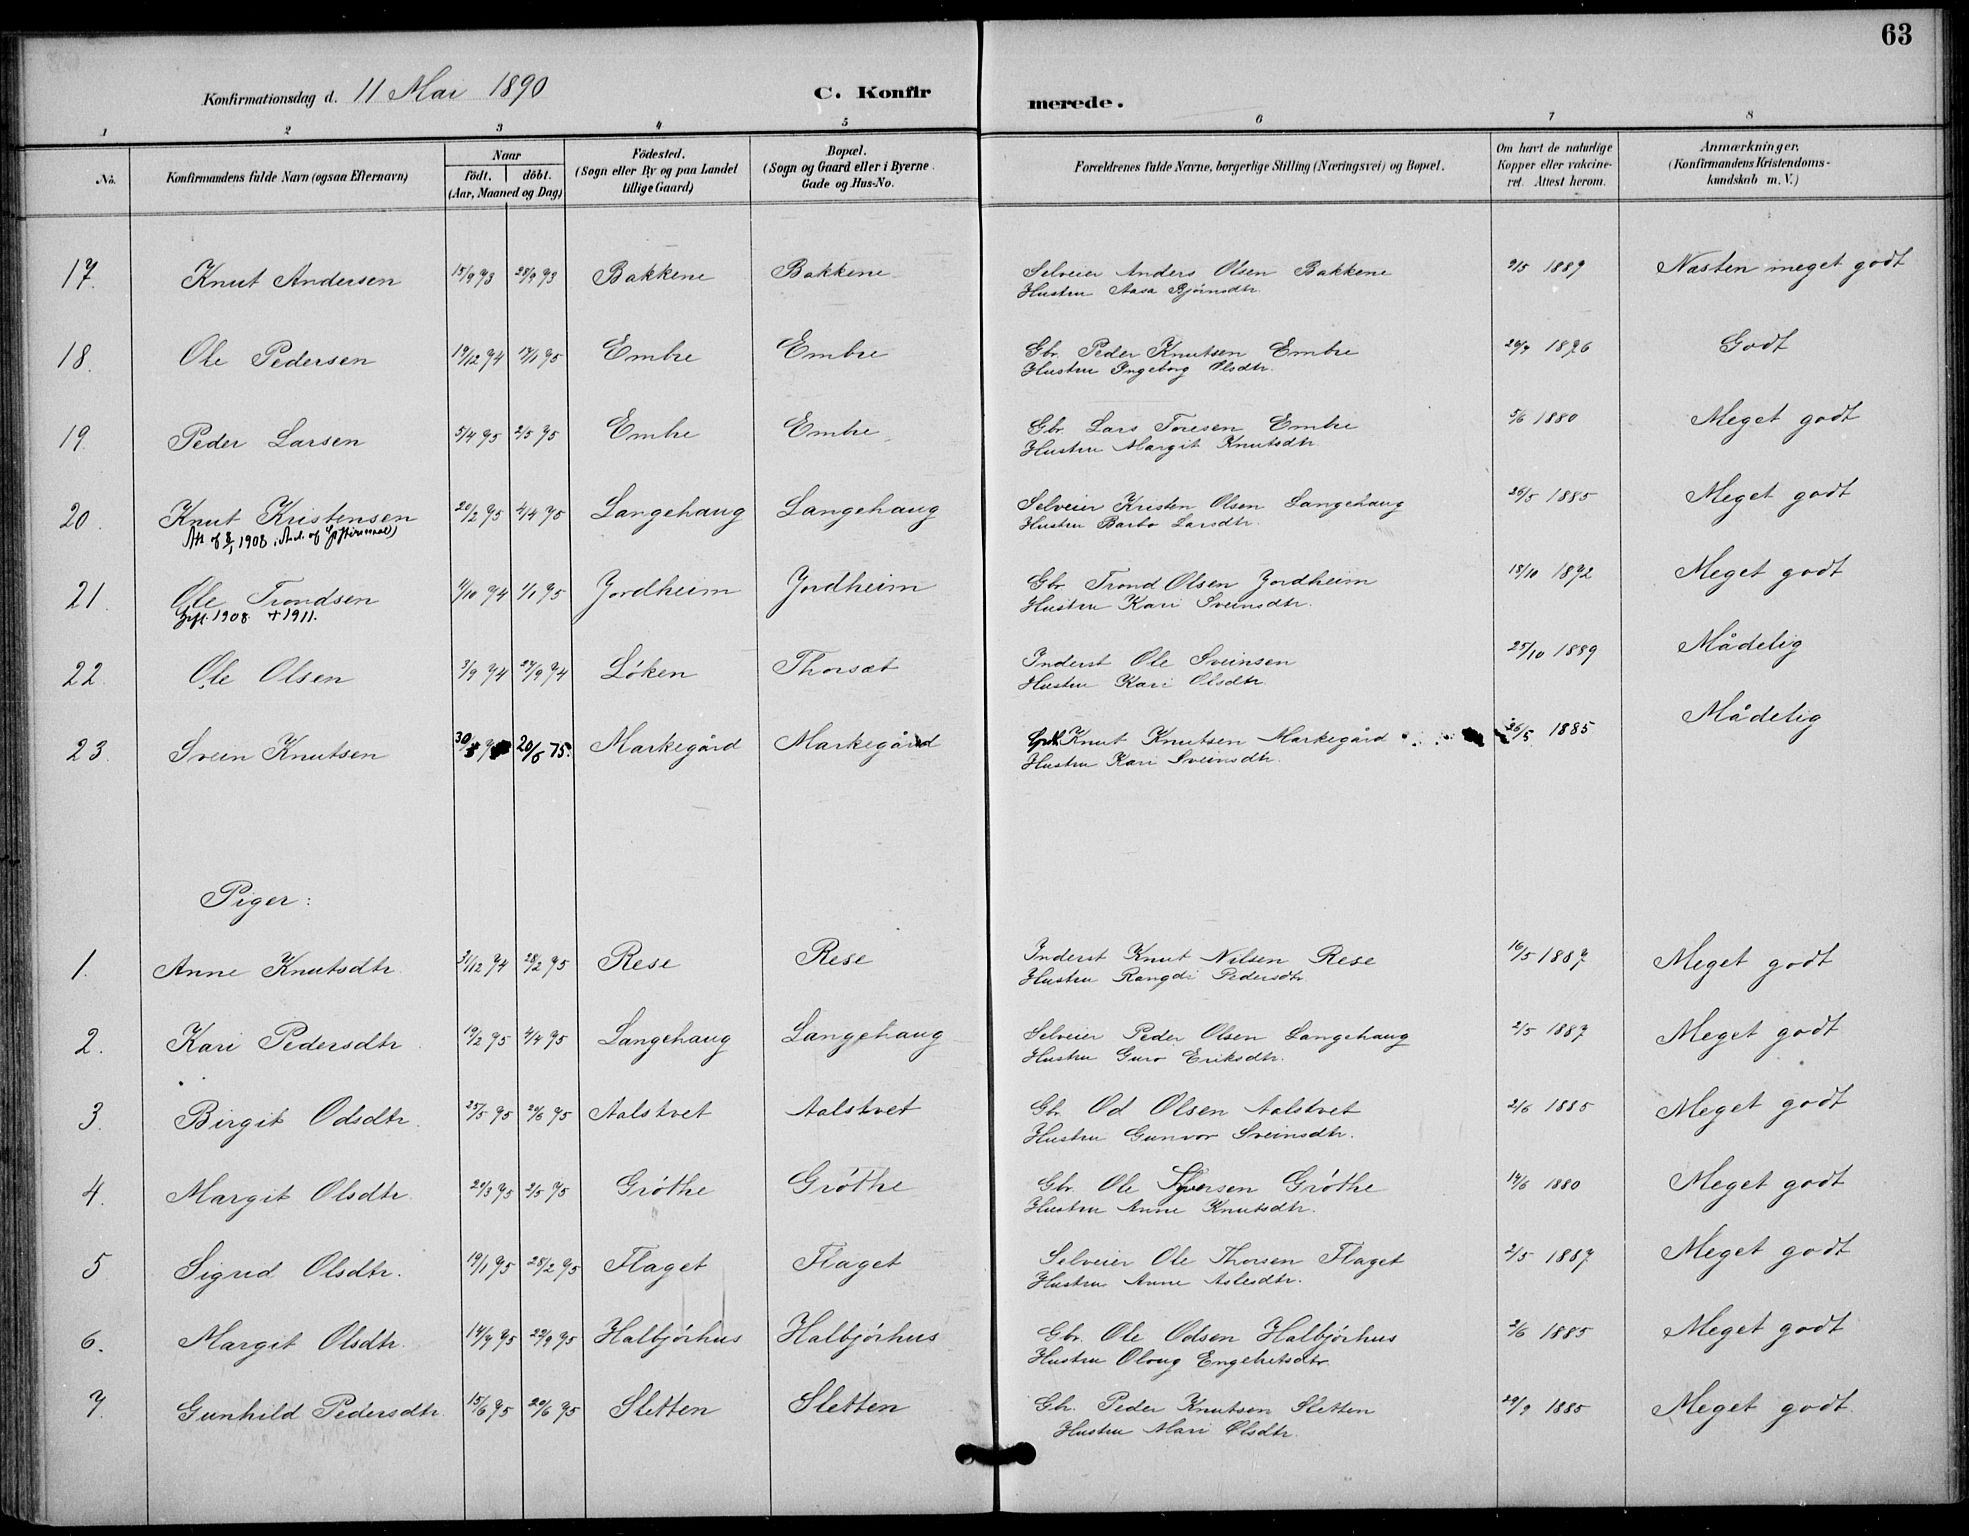 63
Konfirmationsdag d. 11 Mai 1890
C. Konfirmerede.
1 2 3 4 5 6 7 8
No. Konfirmandens fulde Navn (ogsaa Efternavn) Naar Födt. döbt. (Aar, Maaned og Dag) Födested. (Sogn eller By og paa Landet tillige Gaard) Bopæl. (Sogn og Gaard eller i Byerne Gade og Hus-No. Forældrenes fulde Navne, borgerlige Stilling (Næringsvei) og Bopæl. Om havt de naturlige Kopper eller vakcineret. Attest herom. Anmærkninger. (Konfirmandens Kristendomskundskab m. V.)
17. Knut Andersen 15/9 73 28/9 73 Bakkene Bakkene Selveier Anders Olsen Bakkene 2/5 1889 Næsten meget godt
Hustru Aasa Björnsdtr.
18. Ole Pedersen 19/12 74 17/1 75 Embre Embre Gbr. Peder Knutsen Embre 26/9 1876 Godt
Hustru Ingeborg Olsdtr.
19. Peder Larsen 5/4 75 2/5 75 Embre Embre Gbr. Lars Toresen Embre 5/6 1880 Meget godt
Hustru Margit Knutsdtr
20. Knut Kristensen 20/2 75 4/4 75 Langehaug Langehaug Selveier Kristen Olsen Langehaug 26/5 1885 Meget godt
Att af 8/1 1908 Hustru Barbo Larsdtr.
21. Ole Trondsen 11/10 74 1/1 75 Jordheim Jordheim Gbr. Trond Olsen Jordheim 18/10 1872 Meget godt
Gift 1908. + 1911. Hustru Kari Sveinsdtr.
22. Ole Olsen 3/9 74 27/9 74 Löken Thorsæt Inderst Ole Sveinsen 25/10 1889 Mådelig
Hustru Kari Olsdtr.
23. Svein Knutsen 20/6 75. Markegård Markegård Knut Knutsen Markegård 26/5 1885 Mådelig
Hustru Kari Sveinsdtr.
Piger:
1. Anne Knutsdtr. 31/12 74 28/2 75 Rese Rese Inderst Knut Nilsen Rese 16/5 1887 Meget godt
Hustru Rangdi Pedersdtr.
2. Kari Pedersdtr 19/2 75 4/4 75 Langehaug Langehaug Selveier Peder Olsen Langehaug 2/5 1887 Meget godt
Hustru Guro Eriksdtr.
3. Birgit Odsdtr. 25/5 75 20/6 75 Aalstvet Aalstvet Gbr. Od Olsen Aalstvet 2/6 1885 Meget godt
Hustru Gunvor Sveinsdtr.
4. Margit Olsdtr. 29/3 75 2/5 75 Gröthe Gröthe Gbr. Ole Syversen Gröthe 14/6 1880 Meget godt
Hustru Anne Knutsdtr.
5 Sigrid Olsdtr. 19/1 75 28/2 75 Flaget Flaget Selveier Ole Thorsen Flaget 2/5 1887 Meget godt
Hustru Anne Aslesdtr.
6. Margit Olsdtr. 14/7 75 22/9 75 Halbjörhus Halbjörhus Gbr. Ole Odsen Halbjörhus 2/6 1885 Meget godt
Hustru Oloug Engebretsdtr.
7 Gunhild Pedersdtr. 15/6 75 20/6 75 Sletten Sletten Gbr. Peder Knutsen Sletten 29/9 1885 Meget godt.
Hustru Mari Olsdtr.